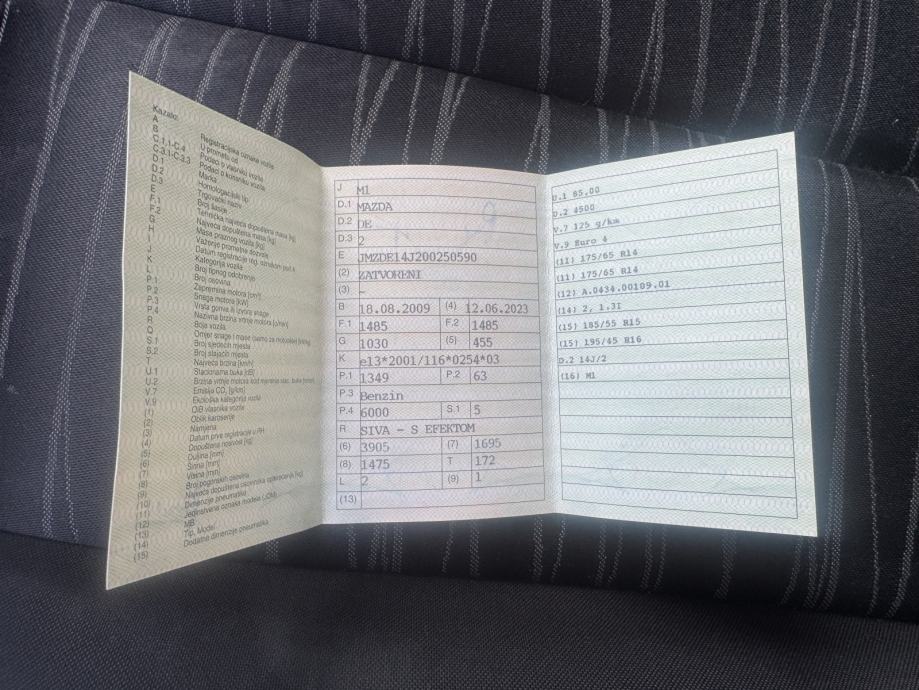 Kazalo:
A Registracijska oznaka vozila
B U prometu od
C.1.1-C.4 Podaci o vlasniku vozila
C.3.1-C.3.3 Podaci o korisniku vozila
D.1 Marka
D.2 Homologacijski tip
D.3 Trgovački naziv
E Broj šasije
F.1 Tehnička najveća dopuštena masa [kg]
F.2 Najveća dopuštena masa [kg]
G Masa praznog vozila [kg]
H Važenje prometne dozvole
I
J Kategorija vozila
K Broj tipnog odobrenja
L Broj osovina
P.1 Zapremina motora [cm³]
P.2 Snaga motora [kW]
P.3 Vrsta goriva ili izvora snage
P.4 Nazivna brzina vrtnje motora [o/min]
R Boja vozila
Q
S.1 Broj sjedećih mjesta
S.2 Broj stajaćih mjesta
T Najveća brzina [km/h]
U.1 Stacionarna buka [dB]
U.2
V.7 Emisija CO₂ [g/km]
V.9 Ekološka kategorija vozila
(1) OIB vlasnika vozila
(2) Oblik karoserije
(3) Namjena
(4) Datum prve registracije u RH
(5) Dopuštena nosivost [kg]
(6) Duljina [mm]
(7) Širina [mm]
(8) Visina [mm]
(9) Broj pogonskih osovina
(10)
(11) Dimenzije pneumatika
(12) Jedinstvena oznaka modela (JOM)
(13) MB
(14) Tip, Model
(15) Dodatne dimenzije pneumatika
J M1
D.1 MAZDA
D.2 DE
D.3 2
E JMZDE14J200250590
(2) ZATVORENI
(3) -
B 18.08.2009 (4) 12.06.2023
F.1 1485 F.2 1485
G 1030 (5) 455
K e13*2001/116*0254*03
P.1 1349 P.2 63
P.3 Benzin
P.4 6000 S.1 5
R SIVA - S EFEKTOM
(6) 3905 (7) 1695
(8) 1475 T 172
L 2 (9) 1
(13)
U.1 85,00
U.2 4500
V.7 125 g/km
V.9 Euro 4
(11) 175/65 R14
(11) 175/65 R14
(12) A.0434.00109.01
(14) 2, 1.3I
(15) 185/55 R15
(15) 195/45 R16
D.2 14J/2
(16) M1